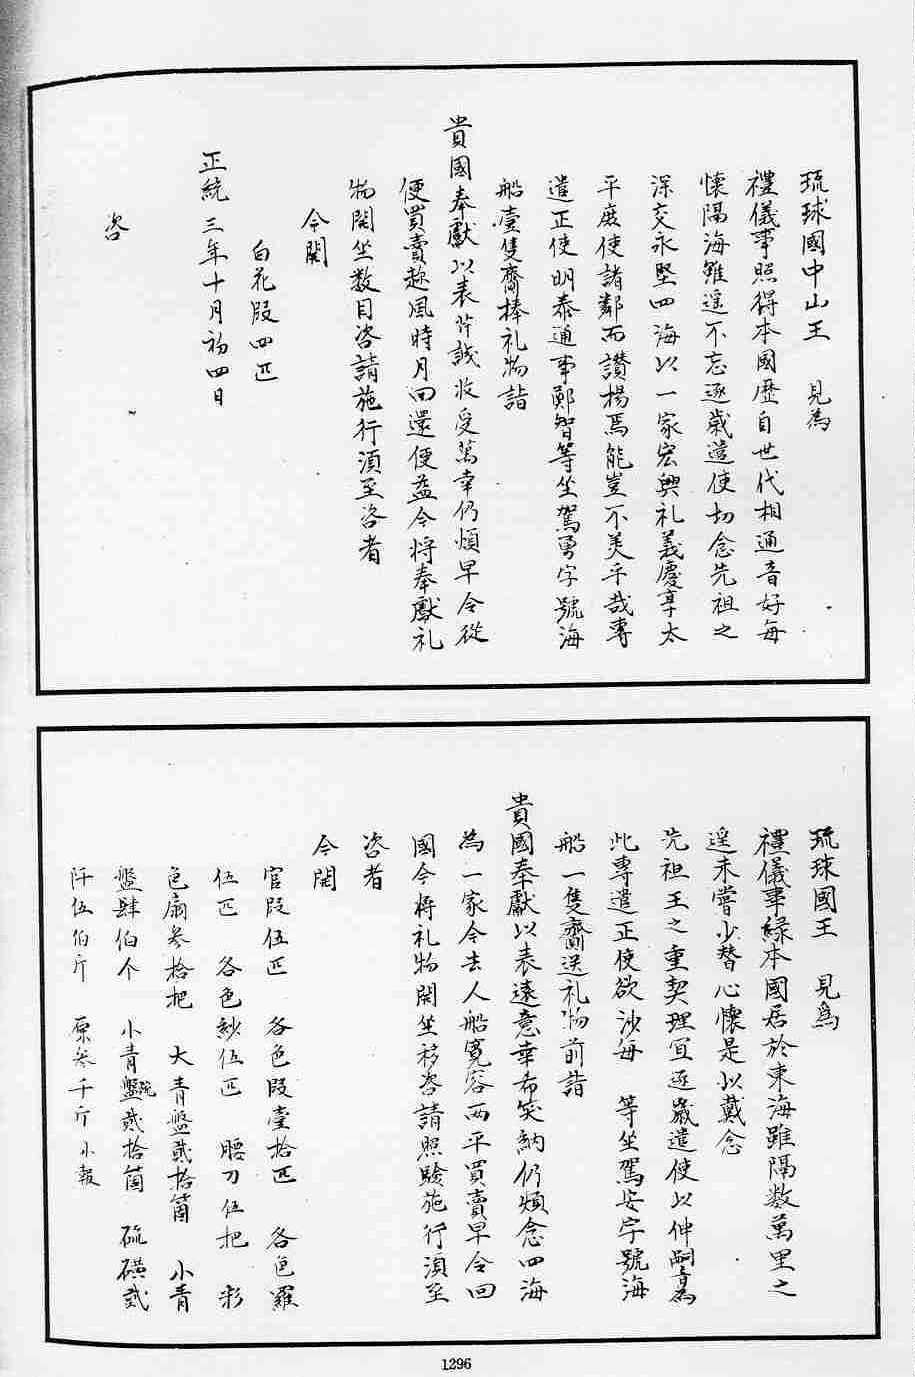 琉球國中山王　見為
禮儀事照得本國歷自世代相通音好每
懷隔海雖遥不忘逐歲遣使切念先祖之
深交永堅四海以一家宏興礼義慶享太
平庶使諸鄰而讃揚焉能豈不美乎哉專
遣正使明泰通事鄭智等坐駕勇字號海
船壹隻齎捧礼物詣
貴國奉獻以表芹誠收受萬幸仍煩早令從
便買賣趂風時月回還便益今將奉獻礼
物開坐数目咨請施行須至咨者
今開
白花段四匹
正統三年十月初四日
咨
琉球國王　見為
禮儀事緣本國居於東海雖隔数萬里之
遥未嘗少替心懷是以戴念
先祖王之重契理宜逐歲遣使以伸嗣音為
此專遣正使欲沙每　等坐駕安字號海
船一隻齎送礼物前詣
貴國奉獻以表遠意幸希笑納仍煩念四海
為一家今去人船寬容兩平買賣早令回
國今將礼物開坐移咨請照驗施行須至
咨者
今開
官段伍匹　各色段壹拾匹　各色羅
伍匹　各色紗伍匹　腰刀伍把　彩
色扇叁拾把　大青盤貳拾箇　小青
盤肆伯个　小青盤貳拾箇　硫磺貳
阡伍伯斤　原叁千斤小報
1296